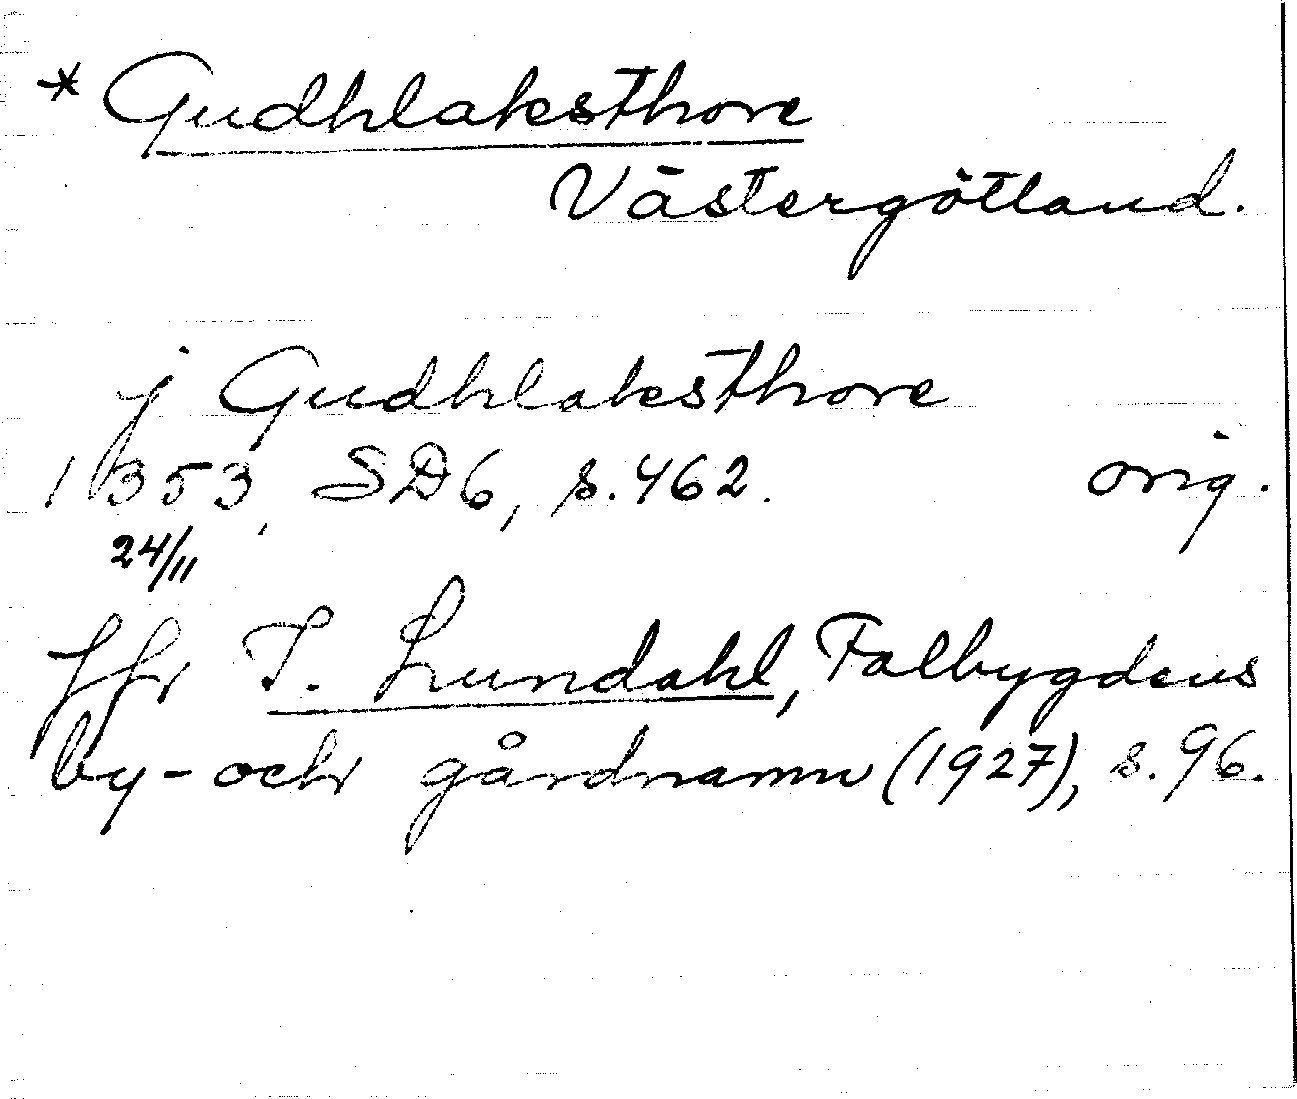 * Gudhlaksthore
Västergötland.
j Gudhlaksthore
1353, SD6, s.462. orig.
24/11
Jfr I. Lundahl, Falbygdens
by- och gårdnamn (1927), s.96.